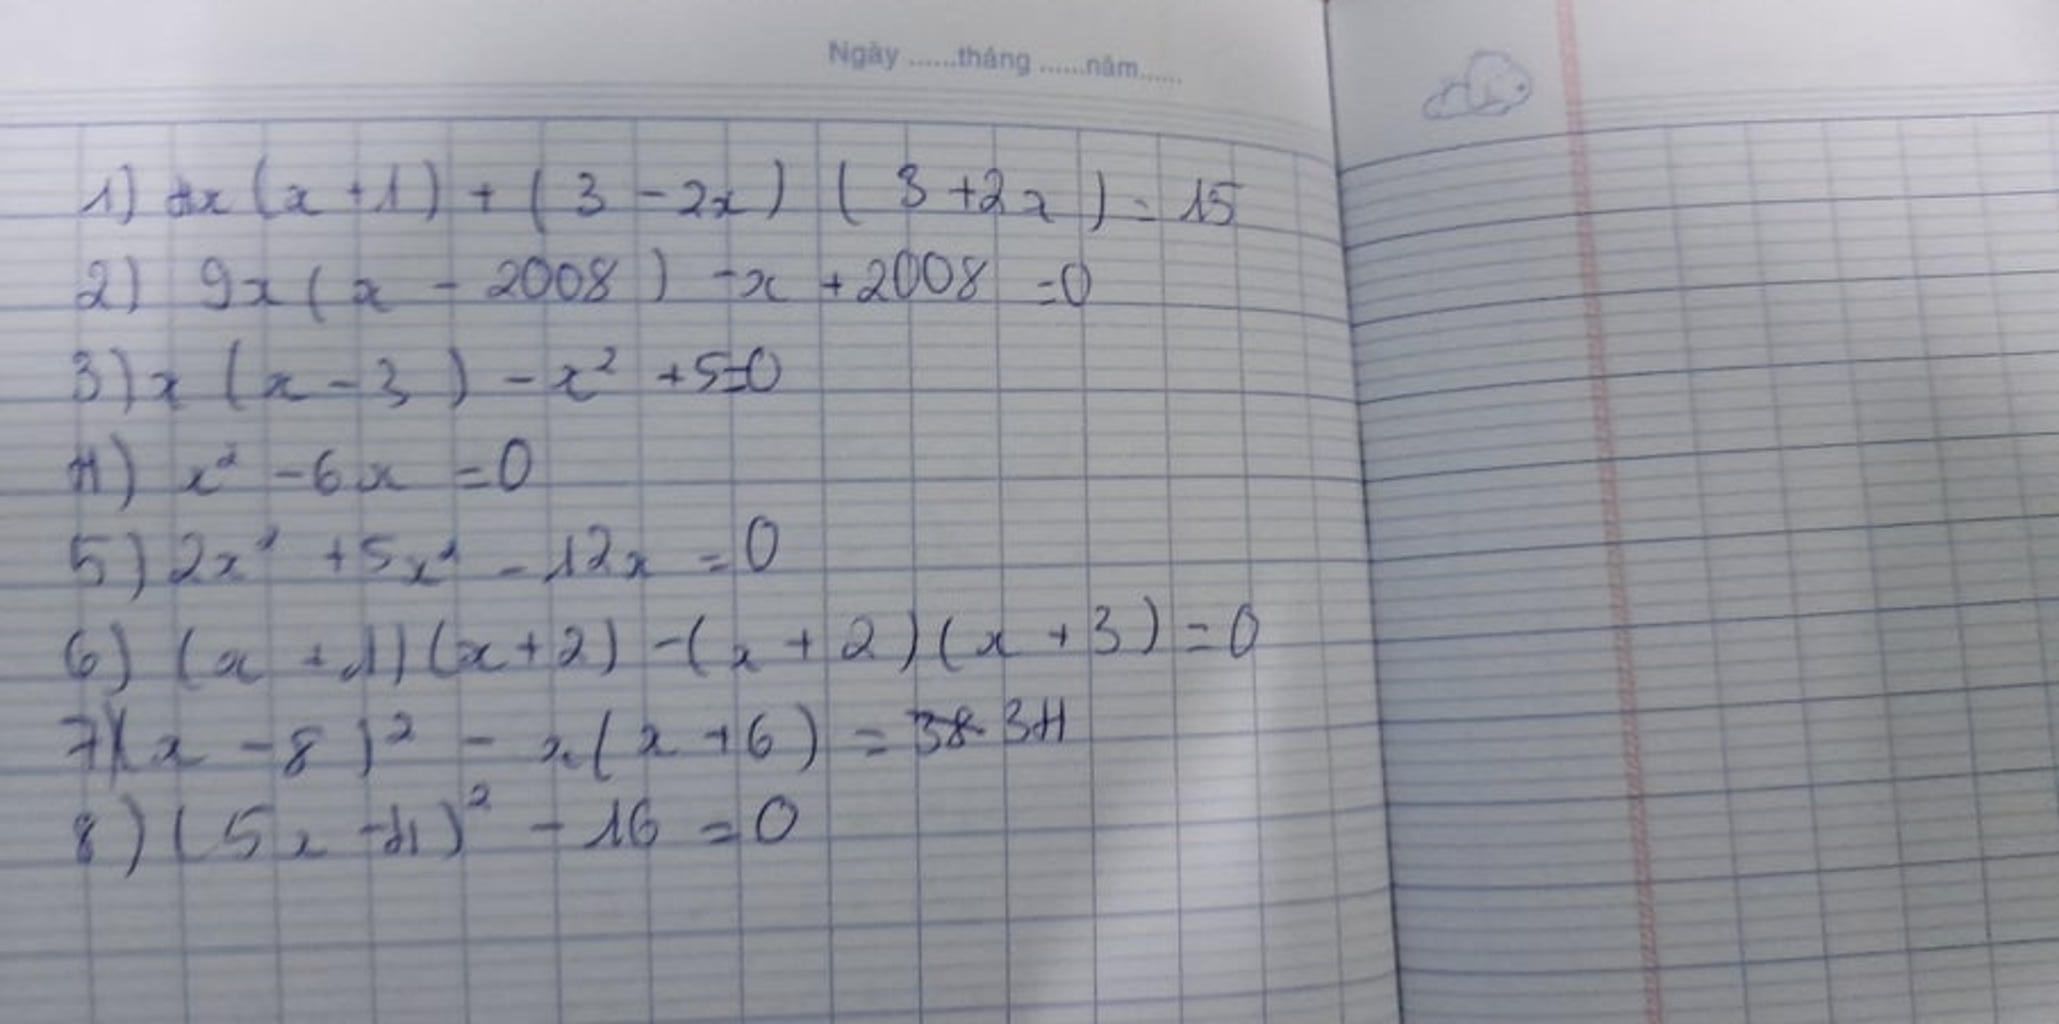 Ngày ......tháng ......năm......
1) 4x(x+1)+(3-2x)(3+2x)=15
2) 9x(x-2008)-x+2008=0
3) x(x-3)-x²+5=0
4) x²-6x=0
5) 2x²+5x²-12x=0
6) (x+1)(x+2)-(x+2)(x+3)=0
7) (x-8)²-x(x+6)=34
8) (5x-4)²-16=0